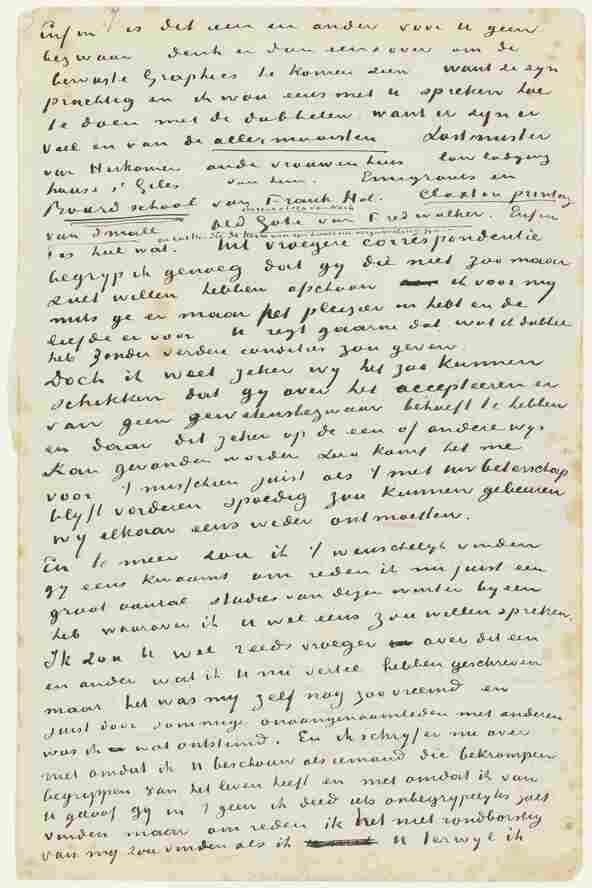 Enfin is dit een en ander voor U geen
bezwaar denk er dan eens over om de
bewuste Graphics te komen zien want ze zyn
prachtig en ik wou eens met U spreken hoe
te doen met de dubbelen want er zyn er
veel en van de allermooisten Lastmuster
van Herkomer oude vrouwenhuis low lodging
house St Giles van hem. Emigrants en
Board school van Frank Hol. Claxton printing
van Small Old Gate van Fred walker. Enfin
't is heel wat. Uit vroegere correspondentie
begryp ik genoeg dat gy die niet zoo maar
zult willen hebben ofschoon ik voor my
mits ge er maar het pleizier in hebt en de
liefde er voor U regt gaarne dat wat ik dubbel
heb zonder verdere condities zou geven.
Doch ik weet zeker wy het zoo kunnen
schikken dat gy over het accepteeren er
van geen gewetensbezwaar behoeft te hebben
en daar dit zeker op de een of andere wys
kan gevonden worden zoo komt het me
voor 't misschien juist als 't met uw beterschap
blyft vorderen spoedig zou kunnen gebeuren
wy elkaar eens weder ontmoetten.
En te meer zou ik 't wenschelyk vinden
gy eens kwaamt om reden ik nu juist een
groot aantal studies van dezen winter by een
heb waarover ik U wel eens zou willen spreken.
Ik zou U wel reeds vroeger over dit een
en ander wat ik U nu vertel hebben geschreven
maar het was my zelf nog zoo vreemd en
juist door sommige onaangenaamheden met anderen
was ik wat ontstemd. En ik schryf er nu over
niet omdat ik U beschouw als iemand die bekrompen
begrippen van het leven heeft en niet omdat ik van
U geloof gy in 't geen ik deed iets onbegrypelyks zult
vinden maar om reden ik het niet rondborstig
van my zou vinden als ik U terwyl ik